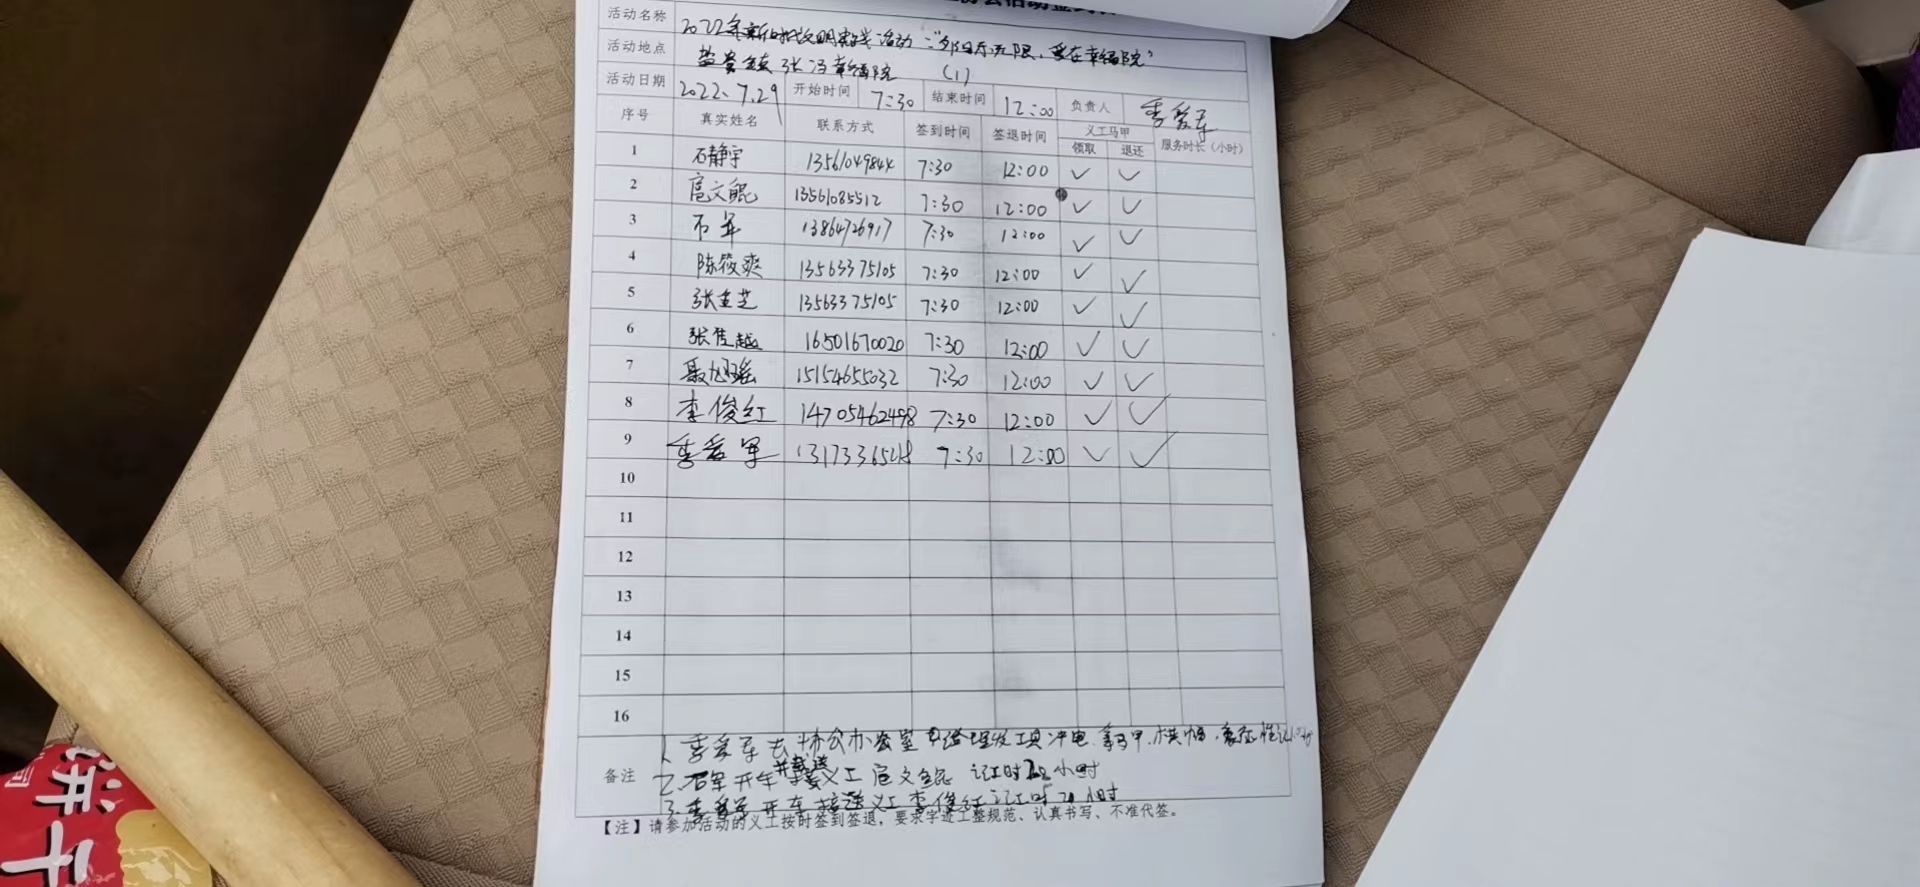 活动名称 2022年新时代文明实践活动:"夕阳无限,爱在幸福院"
活动地点 盐窝镇张冯幸福院 (1)
活动日期 2022.7.29 开始时间 7:30 结束时间 12:00 负责人 季爱军
序号 真实姓名 联系方式 签到时间 签退时间 义工马甲 服务时长(小时)
领取 退还
1 石静宇 13561049844 7:30 12:00 ✓ ✓
2 扈文鲲 13561085512 7:30 12:00 ✓ ✓
3 石军 13864726917 7:30 12:00 ✓ ✓
4 陈筱爽 13563375105 7:30 12:00 ✓ ✓
5 张圭芝 13563375105 7:30 12:00 ✓ ✓
6 张隽越 16501670020 7:30 12:00 ✓ ✓
7 聂旭瑶 15154655032 7:30 12:00 ✓ ✓
8 李俊红 14705462498 7:30 12:00 ✓ ✓
9 季爱军 7:30 12:00 ✓ ✓
10
11
12
13
14
15
16
备注
1. 季爱军去协会办公室 理发工具冲电.拿马甲.横幅.
2. 石军开车 义工扈文鲲 记工时 小时
3. 季爱军开车接送义工李俊红记工时 小时
【注】请参加活动的义工按时签到签退,要求字迹工整规范、认真书写、不准代签。
饼干